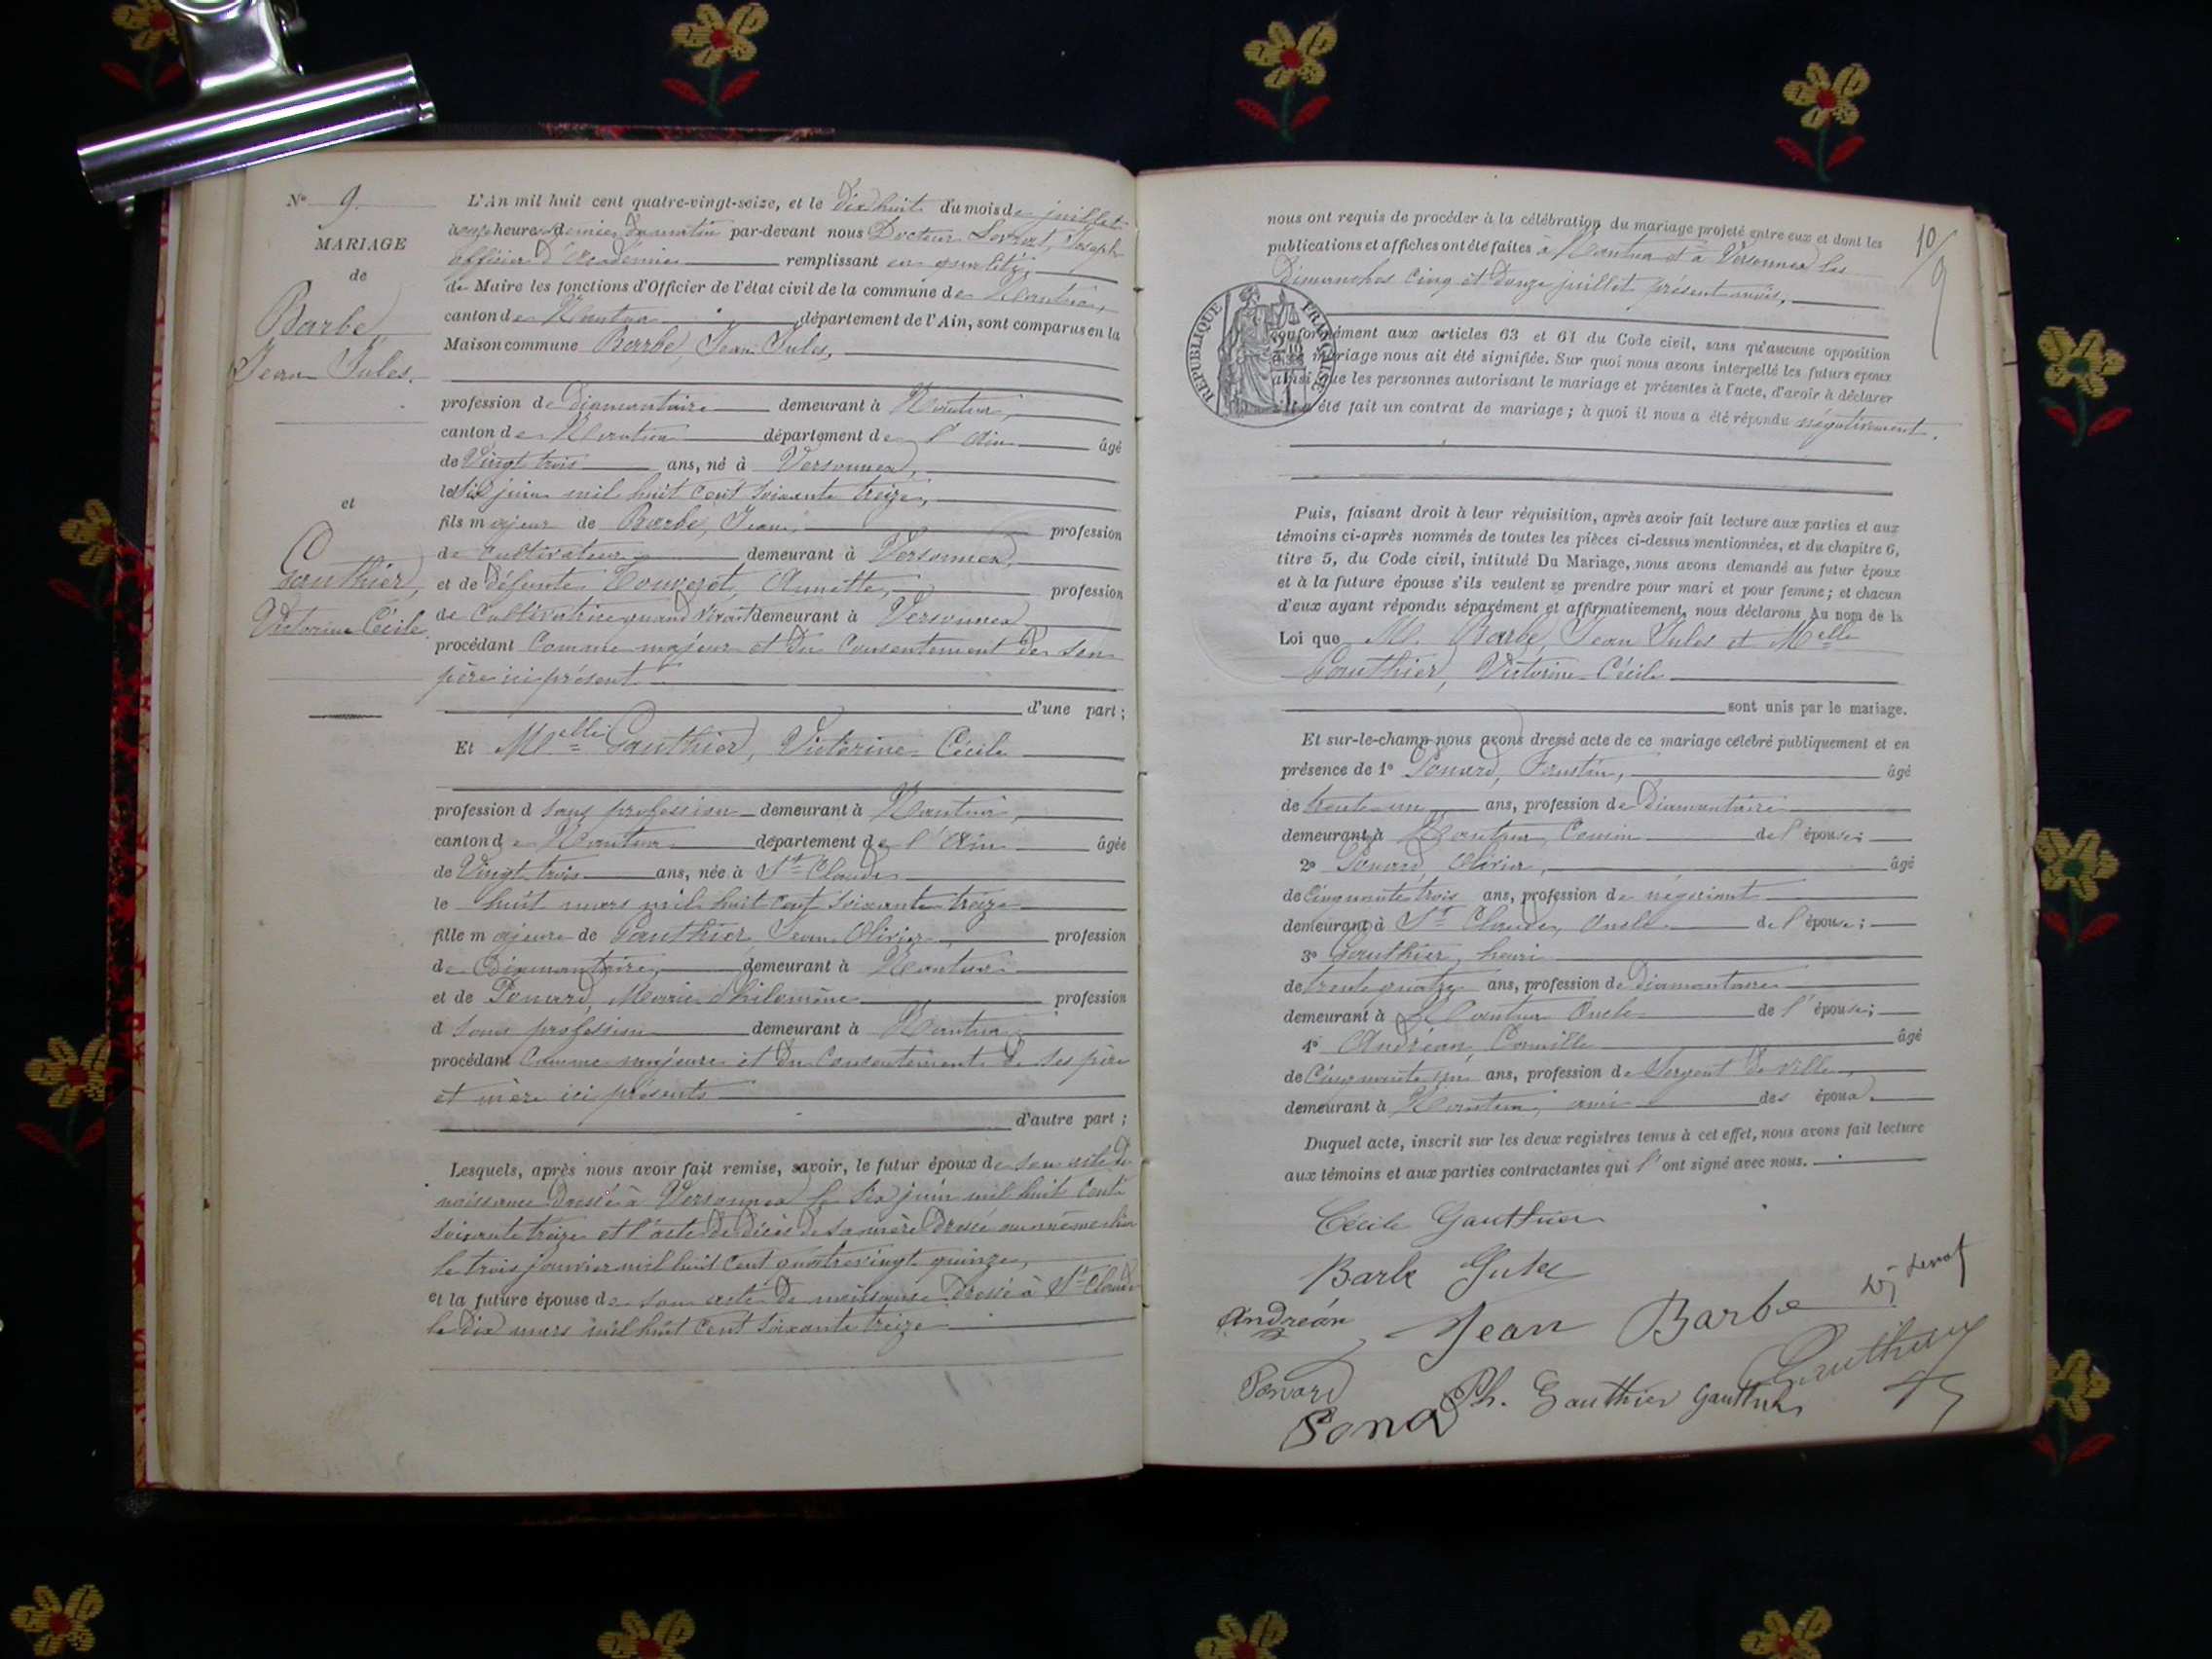 N° 9.
MARIAGE
de
Barbe,
Jean Jules.
et
Gauthier,
Victorine Cécile.
L'An mil huit cent quatre-vingt-seize, et le dix huit du mois de juillet
heures du matin par-devant nous Docteur Joseph
officier d'Académie remplissant en qualité
de Maire les fonctions d'Officier de l'état civil de la commune de Nantua,
canton de Nantua département de l'Ain, sont comparus en la
Maison commune Barbe, Jean Jules,
profession de Diamantaire demeurant à Nantua,
canton de Nantua département de l'Ain âgé
de Vingt trois ans, né à Versonnex,
le six juin mil huit cent soixante treize,
fils majeur de Barbe, Jean, profession
de cultivateur demeurant à Versonnex,
et de défunte Annette, profession
de Cultivatrice quand vivait demeurant à Versonnex
procédant comme majeur et du consentement de son
père ici présent
d'une part ;
Et Melle Gauthier, Victorine Cécile
profession d sans profession demeurant à Nantua,
canton de Nantua département de l'Ain âgée
de Vingt trois ans, née à St Claude
le huit mars mil huit cent soixante treize
fille majeure de Gauthier Jean Olivier profession
de Diamantaire, demeurant à Nantua
et de Ponard, Marie Philomène profession
d sans profession demeurant à Nantua
procédant comme majeure et du consentement de ses père
et mère ici présents
d'autre part ;
Lesquels, après nous avoir fait remise, savoir, le futur époux de son acte de
naissance dressé à Versonnex le six juin mil huit cent
soixante treize et l'acte de décès de sa mère dressé au même lieu
le trois janvier mil huit cent quatre vingt quinze,
et la future épouse de son acte de naissance dressé à St Claude
le dix mars mil huit cent soixante treize
10/9
nous ont requis de procéder à la célébration du mariage projeté entre eux et dont les
publications et affiches ont été faites à Nantua et à Versonnex les
Dimanches cinq et douze juillet présent mois,
RÉPUBLIQUE FRANÇAISE
conformément aux articles 63 et 64 du Code civil, sans qu'aucune opposition
mariage nous ait été signifiée. Sur quoi nous avons interpellé les futurs époux
ainsi que les personnes autorisant le mariage et présentes à l'acte, d'avoir à déclarer
été fait un contrat de mariage ; à quoi il nous a été répondu négativement.
Puis, faisant droit à leur réquisition, après avoir fait lecture aux parties et aux
témoins ci-après nommés de toutes les pièces ci-dessus mentionnées, et du chapitre 6,
titre 5, du Code civil, intitulé Du Mariage, nous avons demandé au futur époux
et à la future épouse s'ils veulent se prendre pour mari et pour femme ; et chacun
d'eux ayant répondu séparément et affirmativement, nous déclarons Au nom de la
Loi que M. Barbe, Jean Jules et Melle
Gauthier, Victorine Cécile
sont unis par le mariage.
Et sur-le-champ nous avons dressé acte de ce mariage célébré publiquement et en
présence de 1° Ponard, Faustin, âgé
de trente un ans, profession de Diamantaire
demeurant à Nantua Cousin de l'épouse ;
2° Ponard, Olivier, âgé
de cinquante trois ans, profession de négociant
demeurant à St Claude, Oncle de l'épouse ;
3° Gauthier, henri
de trente quatre ans, profession de Diamantaire
demeurant à Nantua Oncle de l'épouse ;
4° Andréan, Camille âgé
de Cinquante un ans, profession de Sergent de ville,
demeurant à Nantua, ami des époux.
Duquel acte, inscrit sur les deux registres tenus à cet effet, nous avons fait lecture
aux témoins et aux parties contractantes qui l'ont signé avec nous.
Cécile Gauthier
Barbe Jules
Andréan Jean Barbe
Gauthier
Ponard Ph. Gauthier Gauthier
Ponard